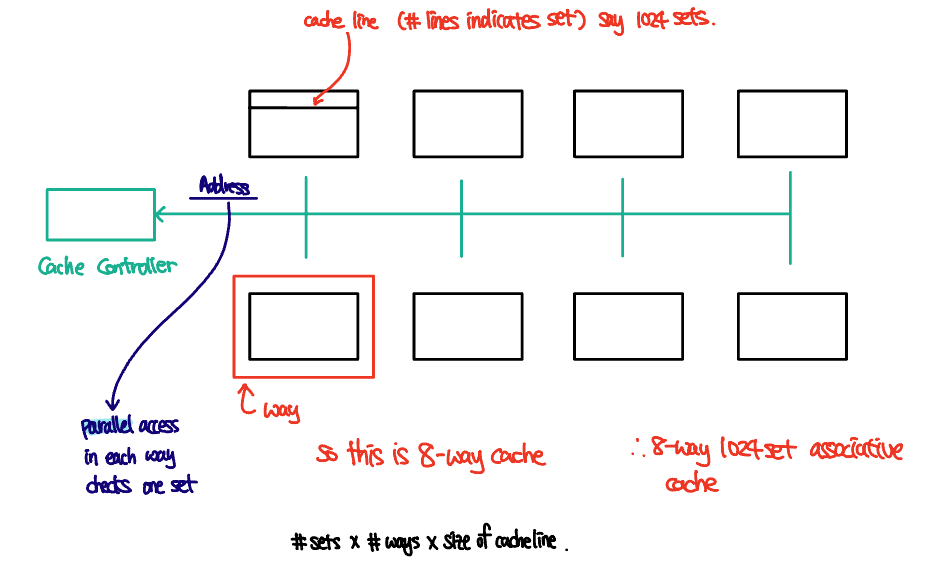 cache line (# lines indicates set) say 1024 sets.
Address
Cache Controller
way
parallel access
in each way
checks one set
so this is 8-way cache
∴ 8-way 1024 set associative
cache
# sets x # ways x size of cacheline.